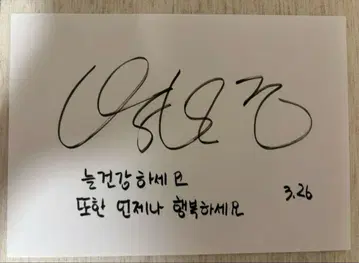 늘 건강하세요
또한 언제나 행복하세요
3.26